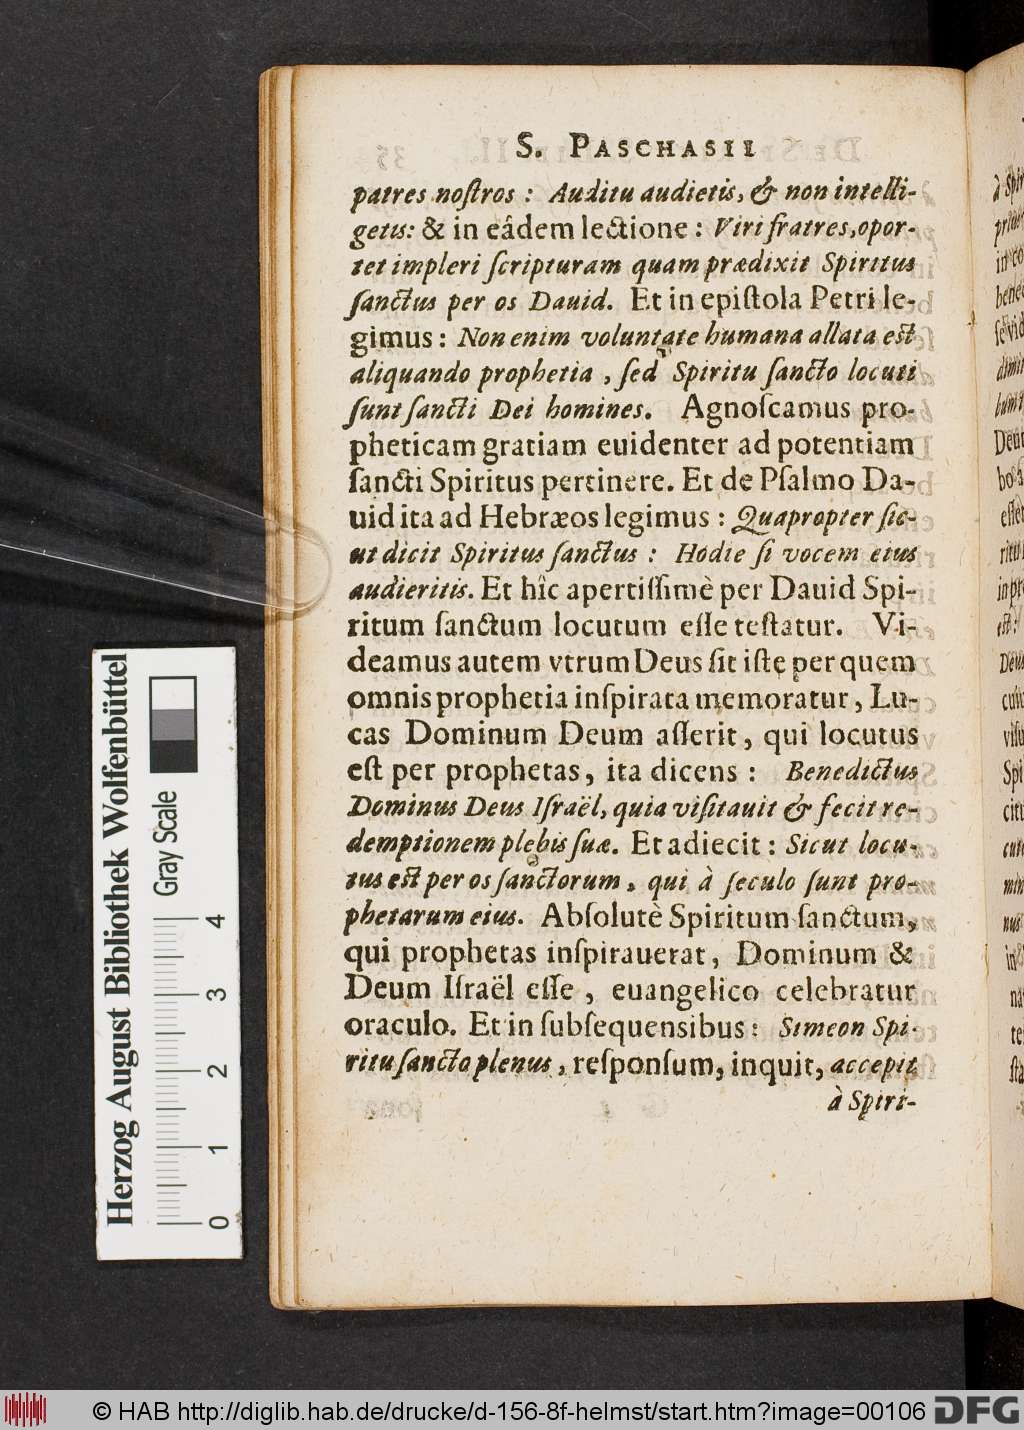 S. PASCHASII
patres noſtros : Auditu audietis, & non intelli-
getis: & in eâdem lectione : Viri fratres, opor-
tet impleri ſcripturam quam prædixit Spiritus
ſanctus per os Dauid. Et in epiſtola Petri le-
gimus : Non enim voluntate humana allata eſt
aliquando prophetia , ſed Spiritu ſancto locuti
ſunt ſancti Dei homines. Agnoſcamus pro-
pheticam gratiam euidenter ad potentiam
ſancti Spiritus pertinere. Et de Pſalmo Da-
uid ita ad Hebræos legimus : Quapropter ſic-
ut dicit Spiritus ſanctus : Hodie ſi vocem eius
audieritis. Et hîc apertiſſimè per Dauid Spi-
ritum ſanctum locutum eſſe teſtatur. Vi-
deamus autem vtrum Deus ſit iſte per quem
omnis prophetia inſpirata memoratur, Lu-
cas Dominum Deum aſſerit, qui locutus
eſt per prophetas, ita dicens : Benedictus
Dominus Deus Iſraël, quia viſitauit & fecit re-
demptionem plebis ſuæ. Et adiecit : Sicut locu-
tus eſt per os ſanctorum, qui à ſeculo ſunt pro-
phetarum eius. Abſolutè Spiritum ſanctum,
qui prophetas inſpirauerat, Dominum &
Deum Iſraël eſſe , euangelico celebratur
oraculo. Et in ſubſequensibus : Simeon Spi-
ritu ſancto plenus, reſponſum, inquit, accepit
à Spiri-
Herzog August Bibliothek Wolfenbüttel
Gray Scale
0 1 2 3 4
© HAB http://diglib.hab.de/drucke/d-156-8f-helmst/start.htm?image=00106
DFG